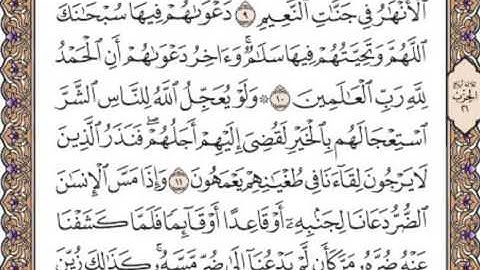 ٱلْأَنْهَٰرُ فِي جَنَّٰتِ ٱلنَّعِيمِ ٩ دَعْوَىٰهُمْ فِيهَا سُبْحَٰنَكَ
ٱللَّهُمَّ وَتَحِيَّتُهُمْ فِيهَا سَلَٰمٌ ۚ وَءَاخِرُ دَعْوَىٰهُمْ أَنِ ٱلْحَمْدُ
لِلَّهِ رَبِّ ٱلْعَٰلَمِينَ ١٠ ۞ وَلَوْ يُعَجِّلُ ٱللَّهُ لِلنَّاسِ ٱلشَّرَّ
ٱسْتِعْجَالَهُم بِٱلْخَيْرِ لَقُضِيَ إِلَيْهِمْ أَجَلُهُمْ ۖ فَنَذَرُ ٱلَّذِينَ
لَا يَرْجُونَ لِقَآءَنَا فِي طُغْيَٰنِهِمْ يَعْمَهُونَ ١١ وَإِذَا مَسَّ ٱلْإِنسَٰنَ
ٱلضُّرُّ دَعَانَا لِجَنۢبِهِۦٓ أَوْ قَاعِدًا أَوْ قَآئِمًا فَلَمَّا كَشَفْنَا
عَنْهُ ضُرَّهُۥ مَرَّ كَأَن لَّمْ يَدْعُنَآ إِلَىٰ ضُرٍّ مَّسَّهُۥ ۚ كَذَٰلِكَ زُيِّنَ
الحزب
٢١